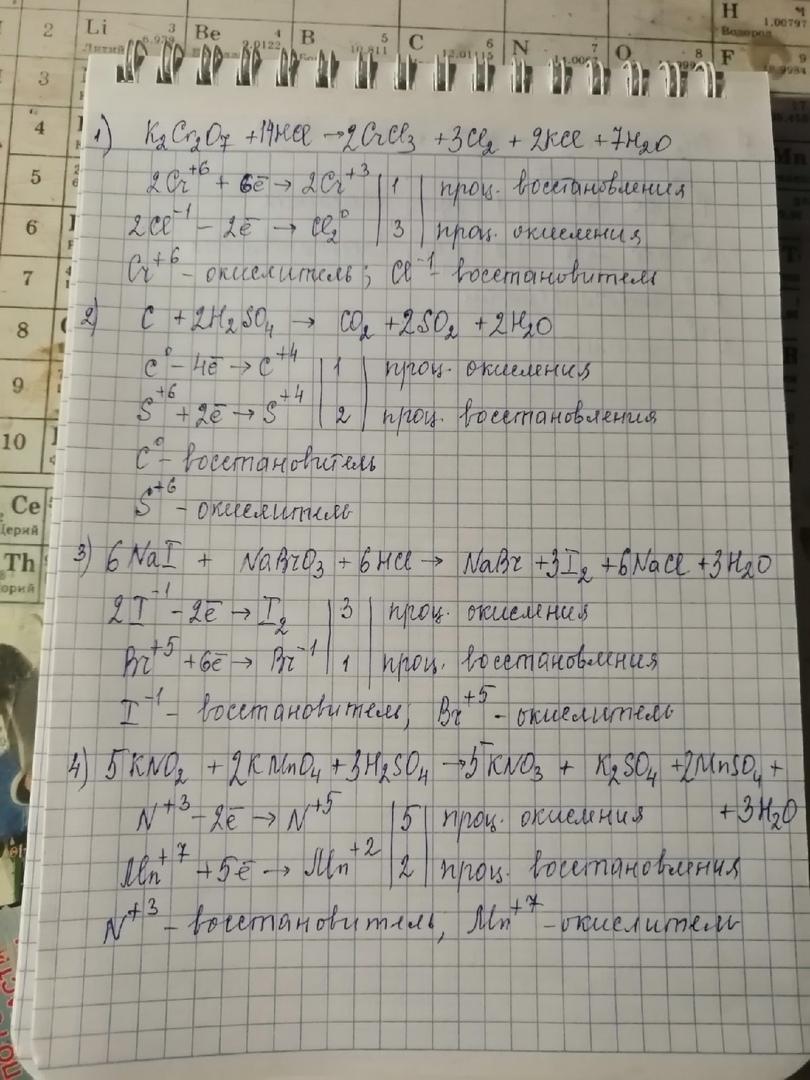 2 Li 3 Be 4 B 5 C 6 N 7 O 8 F 9
H 1.00797
Водород
Литий 6.939 9.0122 10.811 12.01115 18.9984
3
4
5
6
7
8
9
10
Ce
Церий
Th
Торий
1) K₂Cr₂O₇ + 14HCl → 2CrCl₃ + 3Cl₂ + 2KCl + 7H₂O
2Cr⁺⁶ + 6ē → 2Cr⁺³ | 1 | проц. восстановления
2Cl⁻¹ - 2ē → Cl₂⁰ | 3 | проц. окисления
Cr⁺⁶ - окислитель; Cl⁻¹ - восстановитель
2) C + 2H₂SO₄ → CO₂ + 2SO₂ + 2H₂O
C⁰ - 4ē → C⁺⁴ | 1 | проц. окисления
S⁺⁶ + 2ē → S⁺⁴ | 2 | проц. восстановления
C⁰ - восстановитель
S⁺⁶ - окислитель
3) 6NaI + NaBrO₃ + 6HCl → NaBr + 3I₂ + 6NaCl + 3H₂O
2I⁻¹ - 2ē → I₂ | 3 | проц. окисления
Br⁺⁵ + 6ē → Br⁻¹ | 1 | проц. восстановления
I⁻¹ - восстановитель; Br⁺⁵ - окислитель
4) 5KNO₂ + 2KMnO₄ + 3H₂SO₄ → 5KNO₃ + K₂SO₄ + 2MnSO₄ +
+ 3H₂O
N⁺³ - 2ē → N⁺⁵ | 5 | проц. окисления
Mn⁺⁷ + 5ē → Mn⁺² | 2 | проц. восстановления
N⁺³ - восстановитель; Mn⁺⁷ - окислитель